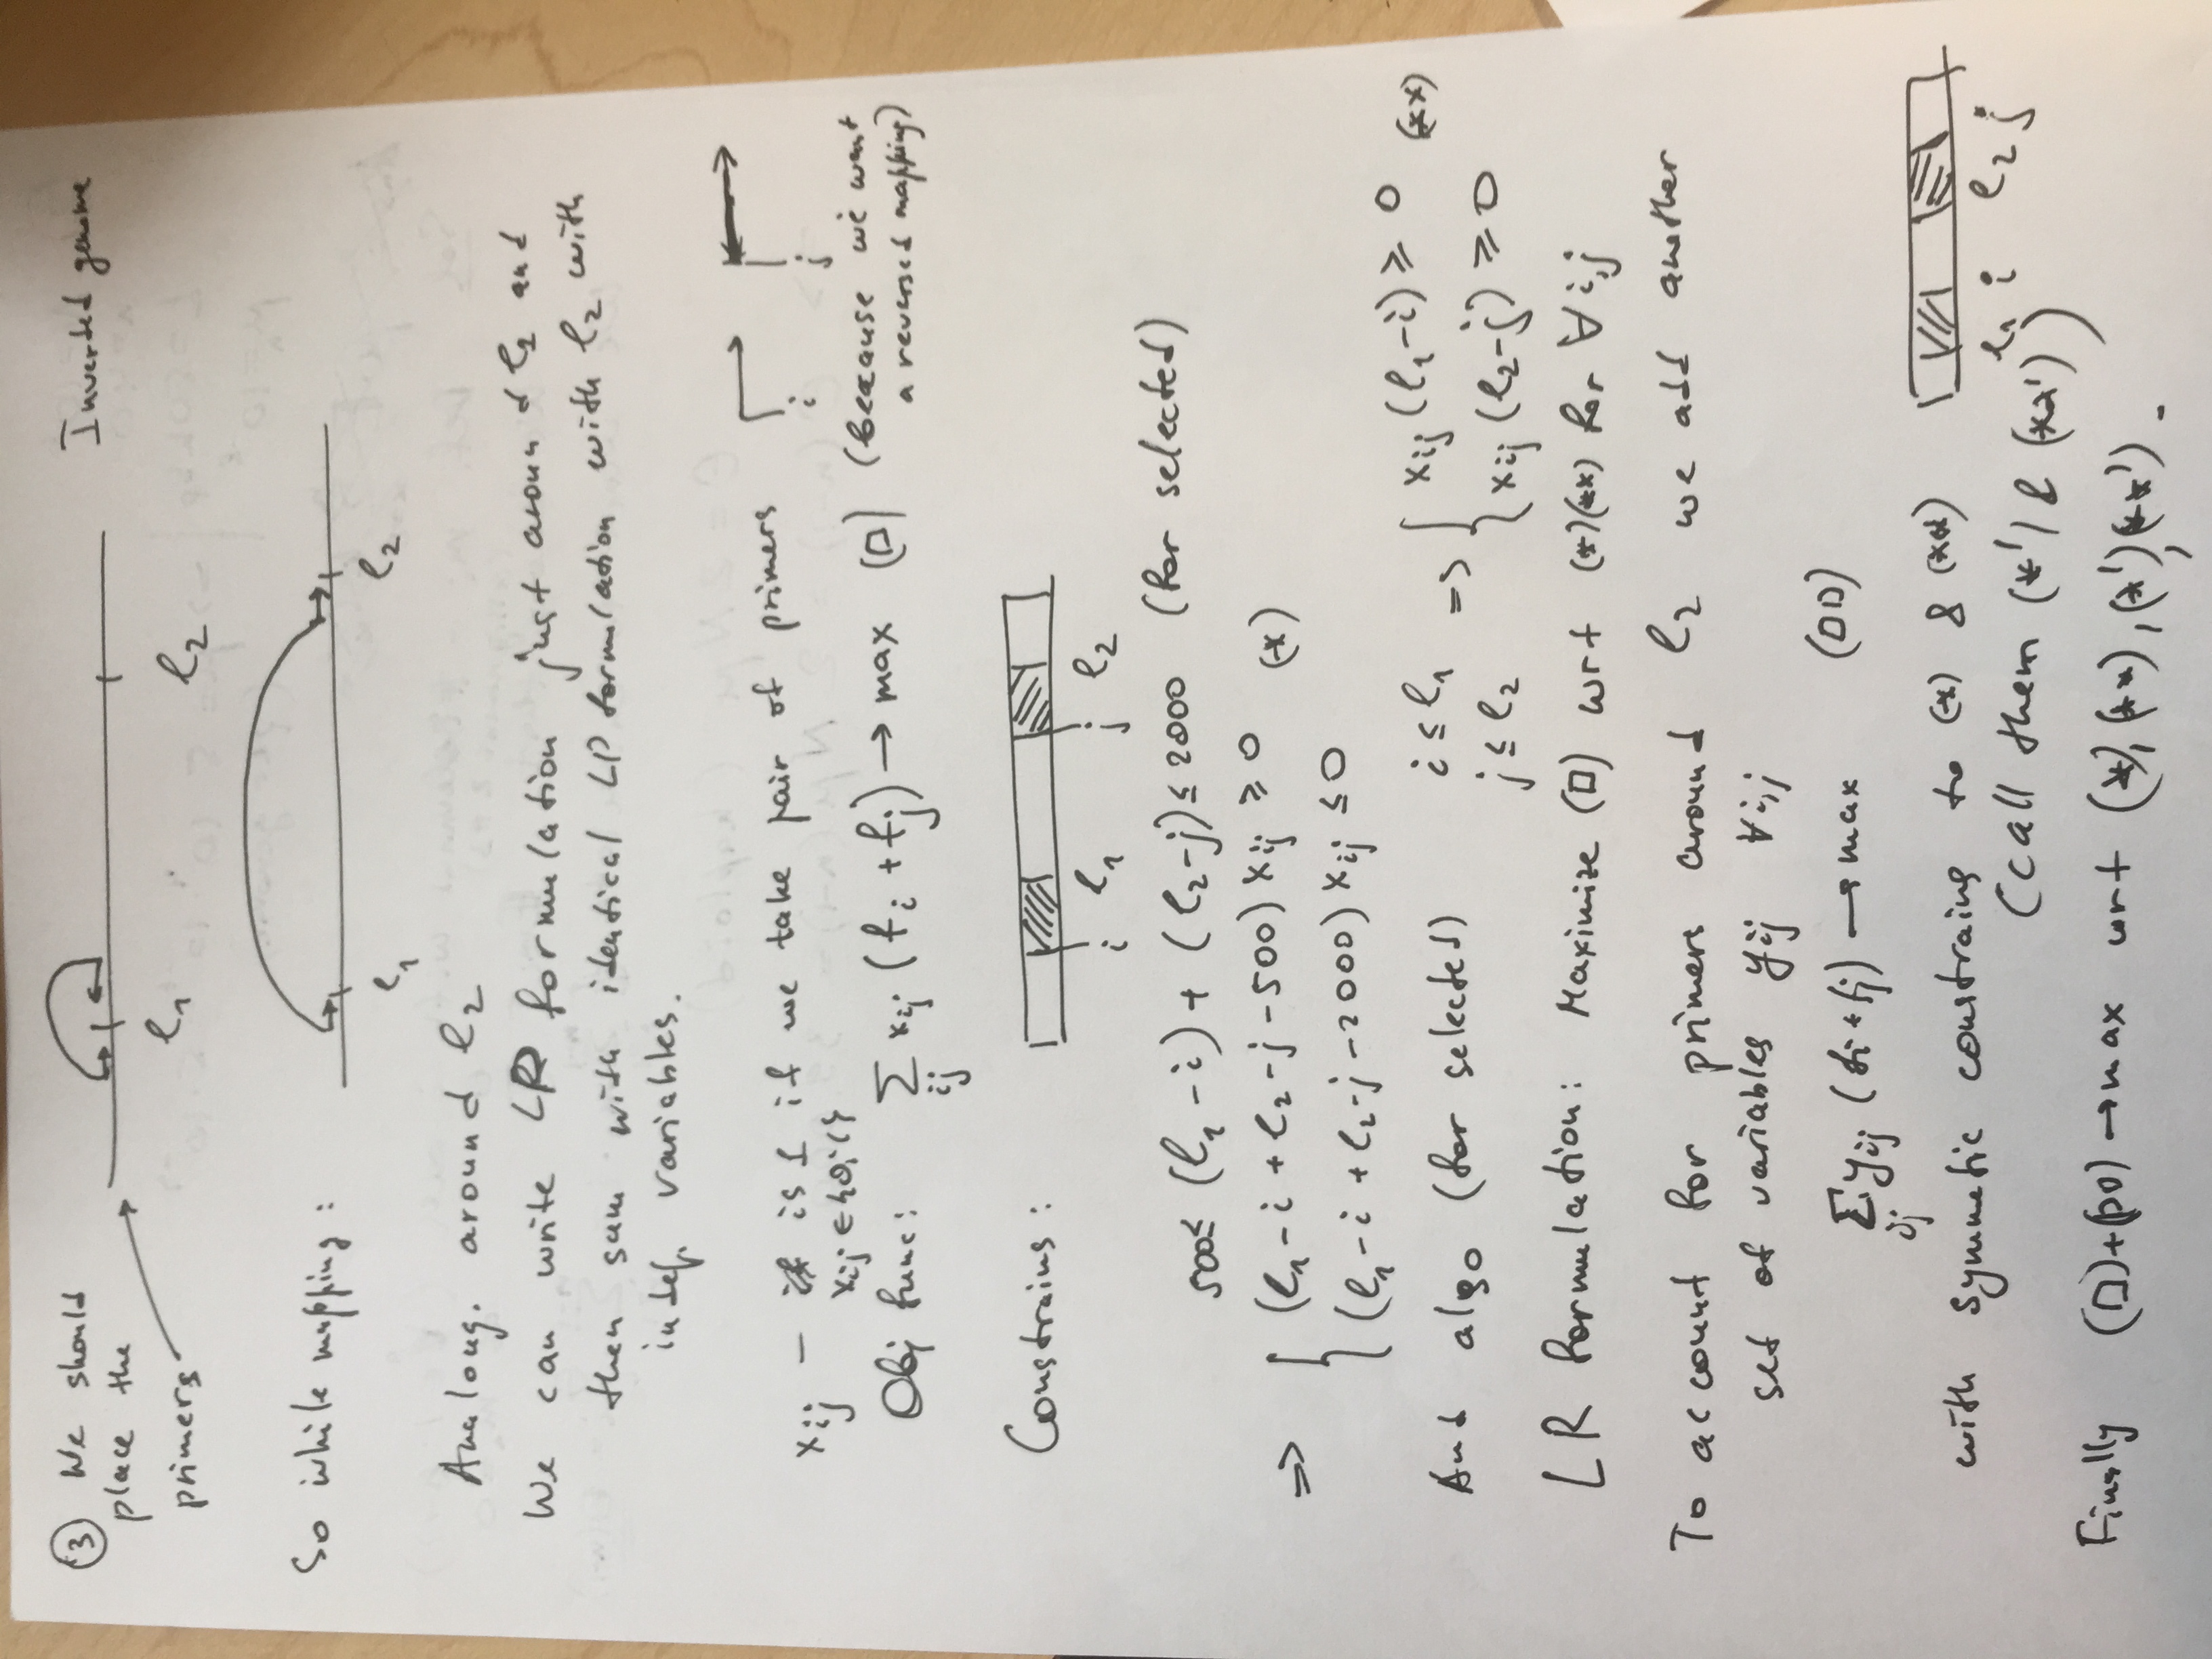 ③ We should
place the
primers
Inverted genome
l₁ l₂
So while mapping :
l₁ l₂
Analoug. around l₂
We can write LP formulation just around l₁ and
then sum with identical LP formulation with l₂ with
indep. variables.
xᵢⱼ – is 1 if we take pair of primers
i j
xᵢⱼ ∈ {0;1}
Obj func: Σᵢⱼ xᵢⱼ (fᵢ + fⱼ) → max (□) (because we want
a reversed mapping)
Constrains :
i l₁ j l₂
500 ≤ (l₁ - i) + (l₂ - j) ≤ 2000 (for selected)
⇒ { (l₁ - i + l₂ - j - 500) xᵢⱼ ⩾ 0 (*)
(l₁ - i + l₂ - j - 2000) xᵢⱼ ≤ 0
And also (for selected) i ≤ l₁ ⇒ { xᵢⱼ (l₁ - i) ⩾ 0 (**)
j ≤ l₂ xᵢⱼ (l₂ - j) ⩾ 0
LR formulation: Maximize (□) wrt (*)(**) for ∀ i,j
To account for primers around l₂ we add another
set of variables yᵢⱼ ∀ i,j
Σᵢⱼ yᵢⱼ (fᵢ + fⱼ) → max (□□)
with symmetic constrains to (*) & (**)
l₁ i l₂ j
(call them (*') & (**'))
Finally (□)+(□□) → max wrt (*), (**), (*'), (**').